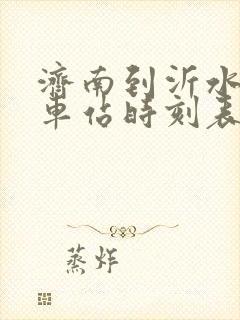 濟南到沂水
車站時刻表
蒸炸